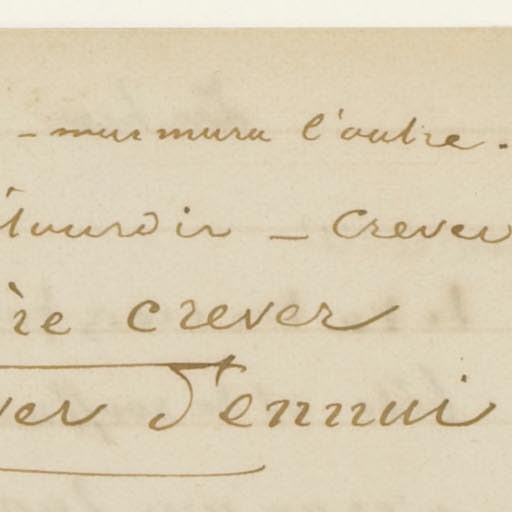 - murmura l'autre.
étourdir - crever
ire crever
ver d'ennui